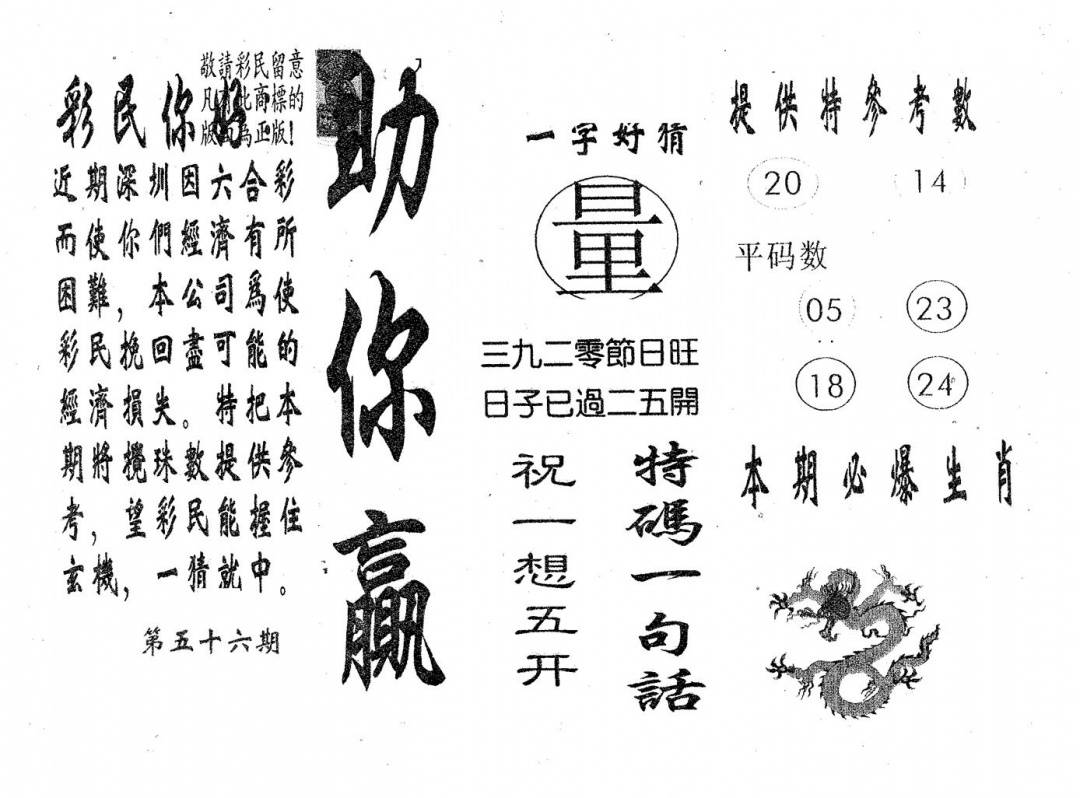 敬請彩民留意
凡有此商標的
版面為正版!
彩民你好
近期深圳因六合彩
而使你們經濟有所
困難，本公司爲使
彩民挽回盡可能的
經濟損失。特把本
期將攪珠數提供參
考，望彩民能握住
玄機，一猜就中。
第五十六期
助你贏
一字好猜
量
三九二零節日旺
日子已過二五開
特碼一句話
祝一想五开
提供特參考數
20 14
平码数
05 23
18 24
本期必爆生肖